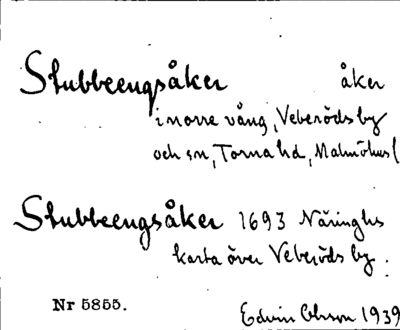 Stubbeengsåker åker
i norre vång, Veberöds by
och sn, Torna hd, Malmöhus l
Stubbeengsåker 1693 Näringhs
karta över Veberöds by.
Nr 5855.
Edvin Ohlsson 1939